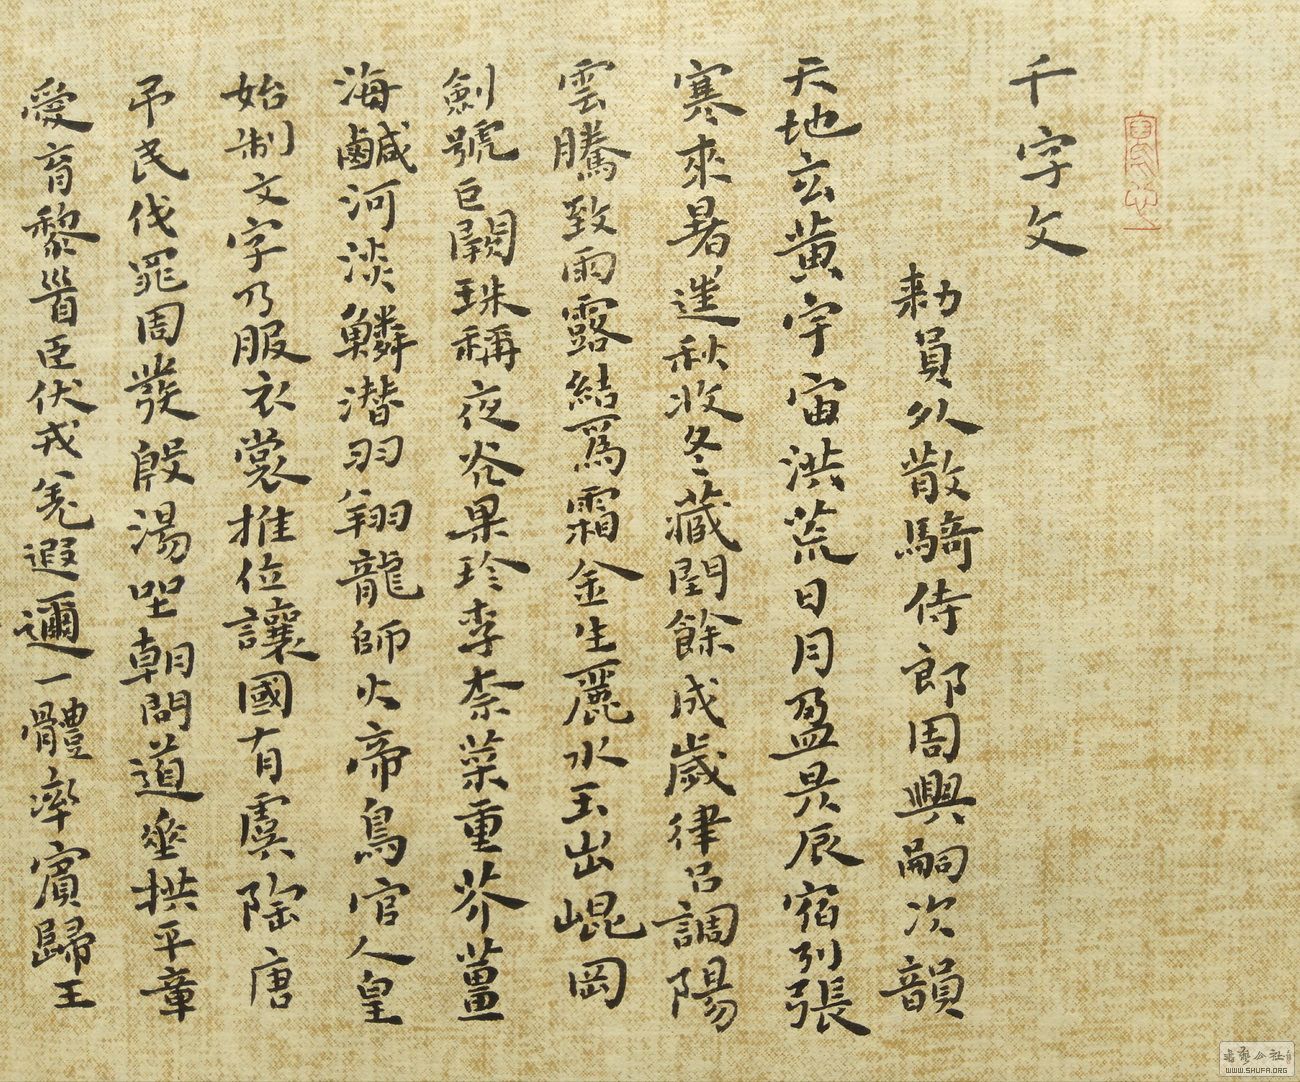 千字文
勅員外散騎侍郎周興嗣次韻
天地玄黄宇宙洪荒日月盈昃辰宿列張
寒來暑進秋收冬藏閏餘成歲律呂調陽
雲騰致雨露結爲霜金生麗水玉出崐岡
劍號巨闕珠稱夜光果珍李柰菜重芥薑
海鹹河淡鱗潛羽翔龍師火帝鳥官人皇
始制文字乃服衣裳推位讓國有虞陶唐
弔民伐罪周發殷湯坐朝問道垂拱平章
愛育黎首臣伏戎羌遐邇一體率賓歸王
WWW.SHUFA.ORG